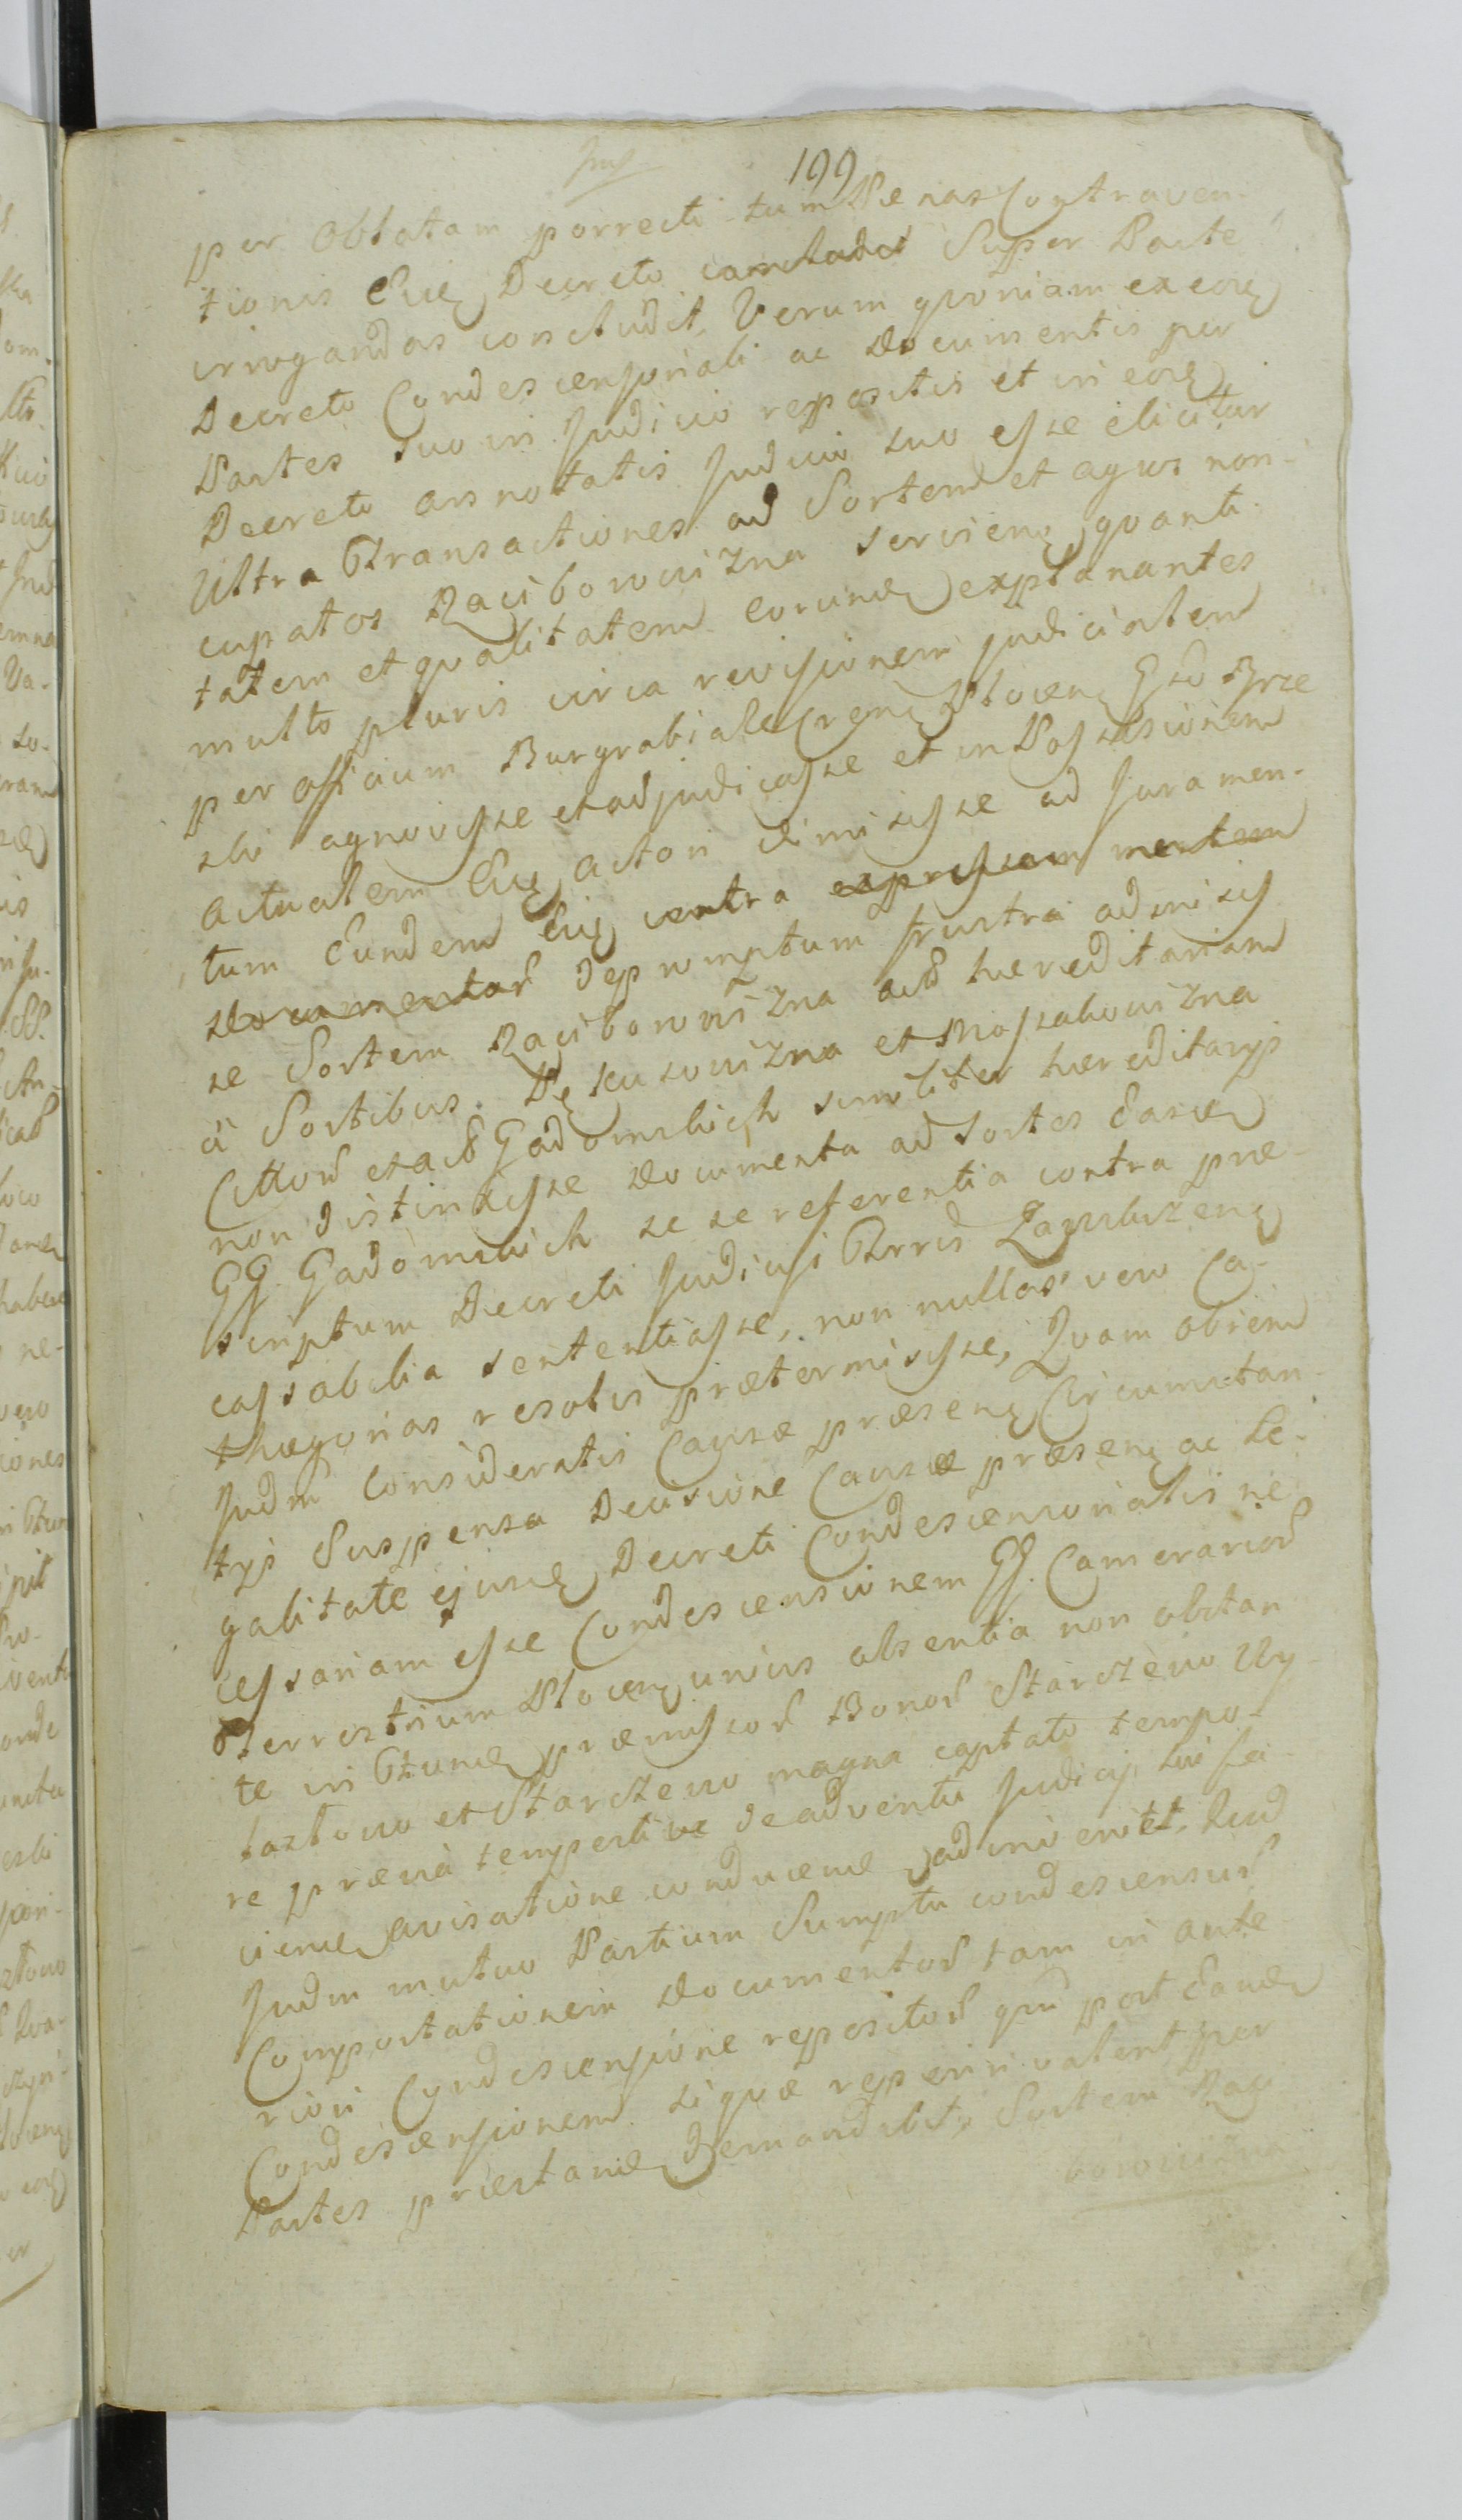 199
per Oblatam porrecti tum Pænas Contraven-
tionis Ejusd Decreto concludit Super Parte
irrogandas concludit, Verum quoniam ex eod
Decreto Condescensoriali ac Documentis per
Partes suo in Judicio repositis et in eod
Decreto annotatis Judicio suo esse elicitur
Ultra Transactiones ad Sortem et agros non-
cupatos Raciborowizna servien quanti-
tatem et qualitatem eorund explanantes
multo pluris circa revisionem judicialem
per officium Burgrabiale Cren Plocen Gso Brze
ski agnovisse et adjudicasse et in Possessionem
actualem Ejusd actori dimisisse ad Juramen-
tum Eundem Ejusd contra expressam mentem
documentor depromptum frustra admisis-
se Sortem Raciborowizna act hæreditariam
à Sortibus Pękusowizna et Mossakowizna
Cittor et act Gadomskich similiter hæreditarys
non distinxisse documenta ad sortes Easd
GG Gadomskich se se referentia contra præ-
scriptum Decreti Judicysi Trris Zawskrzen
cassabilia sententiasse, non nullas vero Ca-
thegorias resolvis prætermisisse, Quam obrem
Judm Consideratis Causæ præsen Circumstan-
tys Suspensa Decisione Causæ præsen ac Le-
galitate ejusd Decreti Condescensorialis ne-
cessariam esse Condescensionem GG. Camerarior
Terrestrium Plocen unius absentia non obstan-
te in Fund præmissor Bonor Starczewo Wy-
taztowo et Starczewo magna captato tempo-
re prævia tempestive de adventu Judicy sui fa-
ciend avisatione conducend adinvenit, Quod
Judm mutuo Partium Sumptu condescensur
Comportationem Documentor tam in ante
riori Condescensione repositor qm post Eand
Condescensionem si quæ reperiri valent per
Partes præstand demandabit, Sortem Raci
borowizna